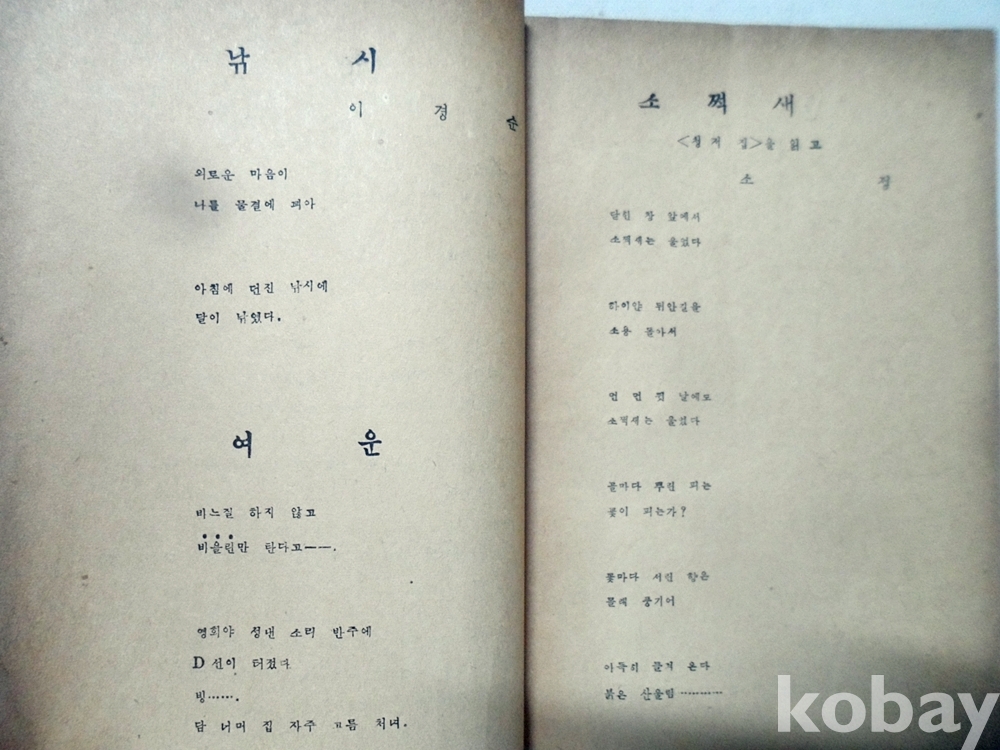 낚 시
이 경 순
외로운 마음이
나를 물결에 띄아
아침에 던진 낚시에
달이 낚였다.
여 운
비느질 하지 않고
비올린만 탄다고――.
영희야 성낸 소리 반주에
D선이 터졌다
빙…….
담 너머 집 자주 고름 처녀.
소 쩍 새
을 읽고
소 정
닫힌 창 앞에서
소쩍새는 울었다
하이얀 뒤안길을
소용 돌아서
먼 먼 옛 날에도
소쩍새는 울었다
뿌린 피는
꽃이 피는가?
꽃마다 서린 향은
몰래 풍기어
아득히 들려 온다
붉은 산울림…………
kobay